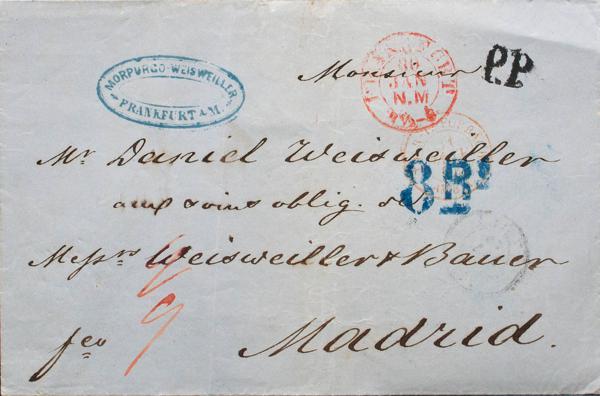 MORPURGO-WEISWEILLER
FRANKFURT A. M.
FRANKFURT
30
JAN
N.M
P.P
Monsieur
Mr Daniel Weisweiller
aux soins oblig. de
8 Rs
Messrs Weisweiller & Bauer
fco
9
Madrid.